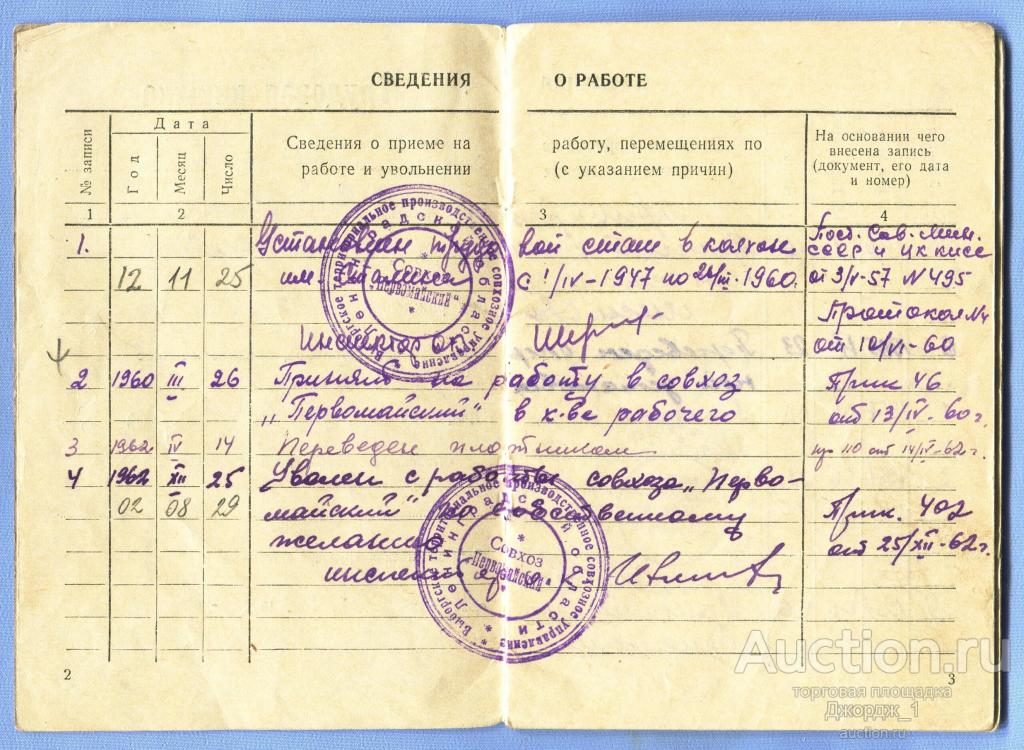 СВЕДЕНИЯ О РАБОТЕ
№ записи
Дата
Год
Месяц
Число
Сведения о приеме на работу, перемещениях по
работе и увольнении (с указанием причин)
На основании чего
внесена запись
(документ, его дата
и номер)
1 2 3 4
1. Установлен трудовой стаж в колхоз Пост. Сов. Мин.
СССР и ЦК КПСС
12 11 25 им. Сталина с 1/IV-1947 по 26/III-1960. от 3/V-57 N 495
Протокол N4
Инспектор ок от 10/VI-60
2 1960 III 26 Принят на работу в совхоз Прик 46
"Первомайский" в к-ве рабочего от 13/IV-60 г.
3 1962 IV 14 Переведен плотником пр 110 от 14/IV-62 г.
4 1962 XII 25 Уволен с работы совхоза "Перво-
02 08 29 майский" по собственному Прик. 402
желанию от 25/XII-62 г.
инспектор ок
Выборгское территориальное производственное совхозное управление
Ленинградской области
Совхоз
"Первомайский"
Выборгское территориальное производственное совхозное управление
Ленинградской области
Совхоз
"Первомайский"
2
3
Auction.ru
торговая площадка
Джордж_1
auction.ru